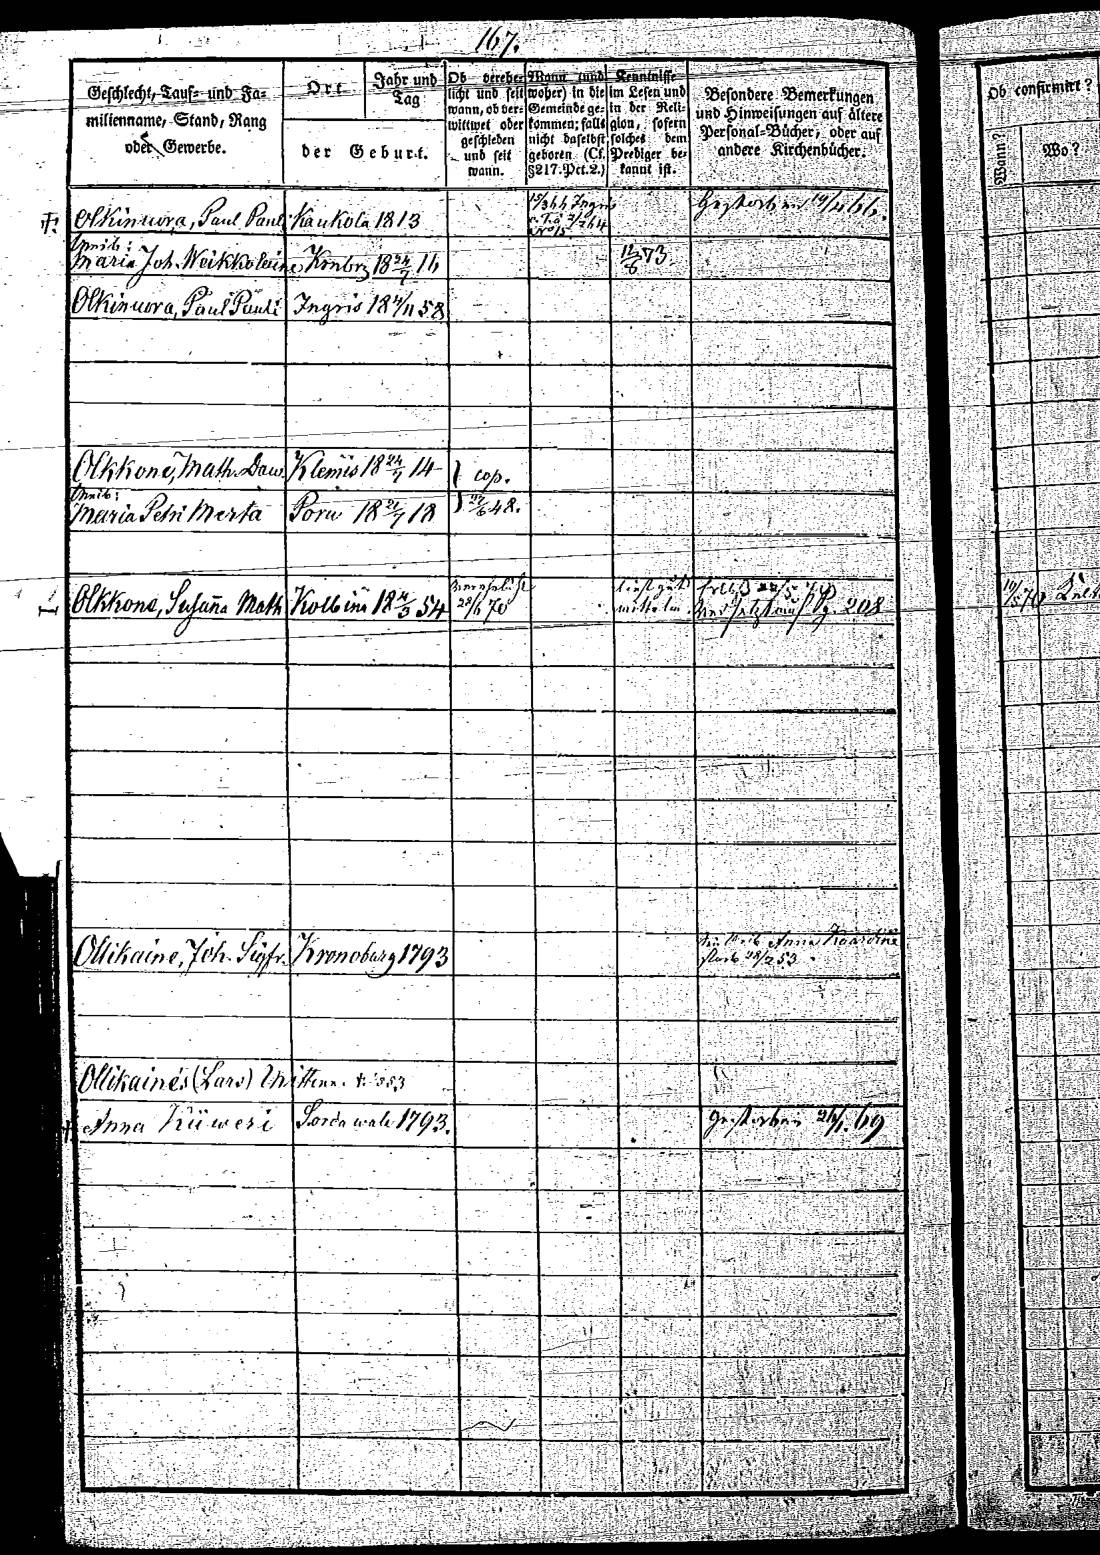 167.
Geschlecht, Tauf- und Familienname, Stand, Rang oder Gewerbe.
Ort
Jahr und Tag
der Geburt.
Ob verehelicht und seit wann, ob verwittwet oder geschieden und seit wann.
Wann (und woher) in die Gemeinde gekommen; falls nicht daselbst geboren (Cf. §217. Pct. 2.)
Kenntnisse im Lesen und in der Religion, sofern solches dem Prediger bekannt ist.
Besondere Bemerkungen und Hinweisungen auf ältere Personal-Bücher, oder auf andere Kirchenbücher.
Ob confirmirt?
Wann?
Wo?
Olkinuora, Paul Pauli Kaukola 1813 Gestorben 19/4 66.
Weib:
Maria Joh. Weikkolaine Kronbrg 18 24/7 16 12/6 73
Olkinuora, Paul Pauli Ingris 18 4/11 58
Olkkone, Math. Daw. Klemis 18 24/7 14 cop.
Weib:
Maria Petri Merta Poru 18 21/7 18 27/6 48.
Olkkone, Susana Math Kolbin 18 4/3 54 verehelicht 23/6 70 liest gut Versetzt auf Pg 208
Ollikaine, Joh. Sigfr. Kronoburg 1793 sein Weib Anna Kaardine starb 28/2 53
Ollikaines (Lars) Wittwe
Anna Küweri Sordawala 1793. Gestorben 26/1. 69